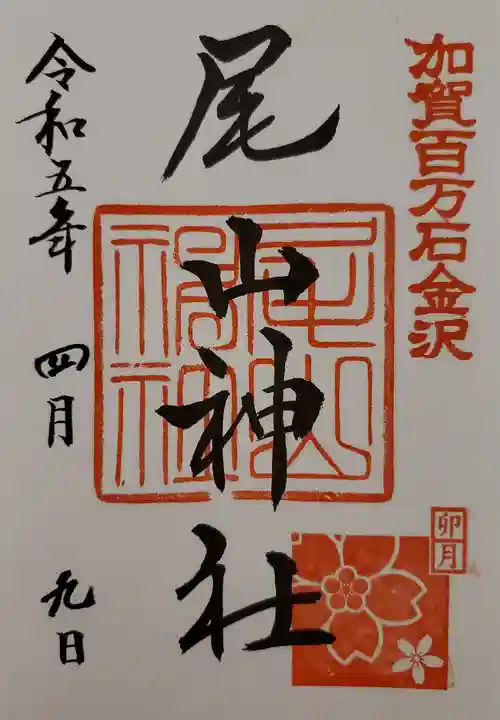 加賀百万石金沢
卯月
尾山神社
尾山神社
令和五年 四月 九日